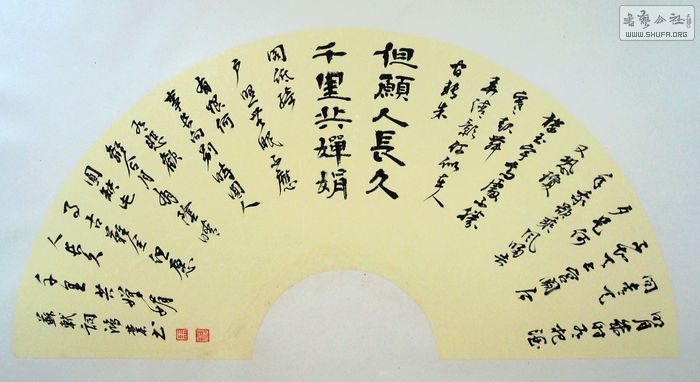 明月幾時有把酒
問青天
不知天上宮闕今
夕是何
年我欲乘風歸去
又恐瓊
樓玉宇高處不勝
寒起舞
弄清影何似在人
間轉朱
但願人長久
千里共嬋娟
閣低綺
戶照無眠不應
有恨何
事長向別時圓人
有悲歡
離合月有陰晴
圓缺此
事古難全但願
人長久
千里共嬋娟
蘇軾詞
书艺公社
WWW.SHUFA.ORG